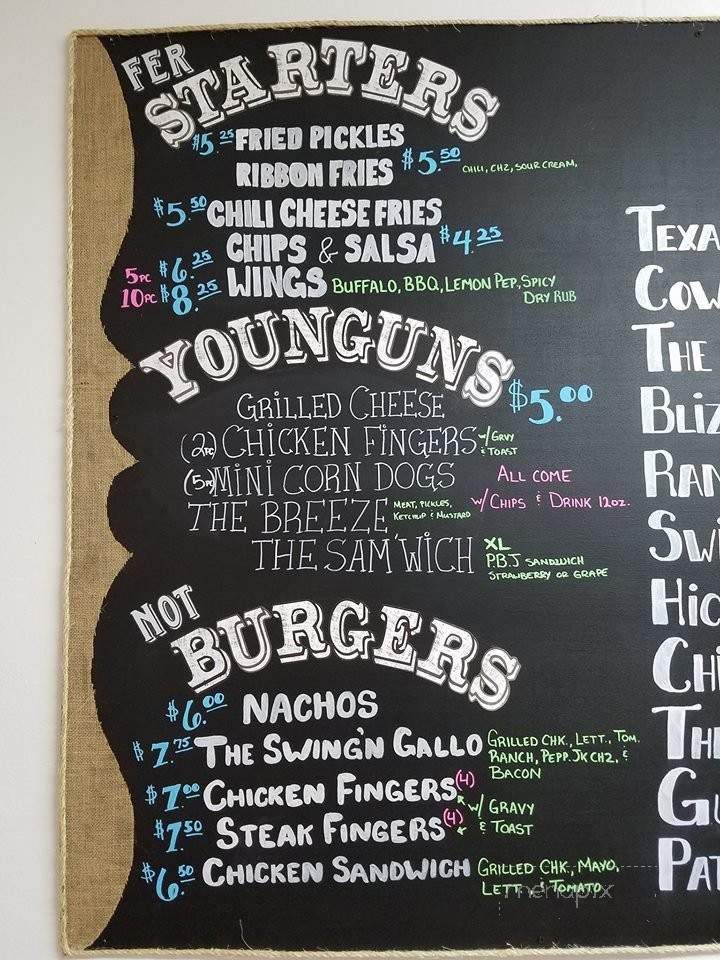 FER
STARTERS
$5.25 FRIED PICKLES
RIBBON FRIES $5.50 CHILI, CHZ, SOUR CREAM,
$5.50 CHILI CHEESE FRIES
CHIPS & SALSA $4.25
5PC $6.25 WINGS BUFFALO, BBQ, LEMON PEP, SPICY
10PC $8.25 DRY RUB
YOUNGUNS $5.00
GRILLED CHEESE
(2PC) CHICKEN FINGERS W/ GRVY
& TOAST
(5PC) MINI CORN DOGS ALL COME
W/ CHIPS & DRINK 12oz.
THE BREEZE MEAT, PICKLES,
KETCHUP & MUSTARD
THE SAM'WICH XL
P.B.J SANDWICH
STRAWBERRY OR GRAPE
NOT
BURGERS
$6.00 NACHOS
$7.75 THE SWING'N GALLO GRILLED CHK., LETT., TOM.
RANCH, PEPP. JK CHZ., &
BACON
$7.00 CHICKEN FINGERS (4) W/ GRAVY
$7.50 STEAK FINGERS (4) & TOAST
$6.50 CHICKEN SANDWICH GRILLED CHK., MAYO,
LETT. & TOMATO
TEXA
COW
THE
BLIZ
RAN
SWI
HIC
CHI
THE
GU
PAT
menupix